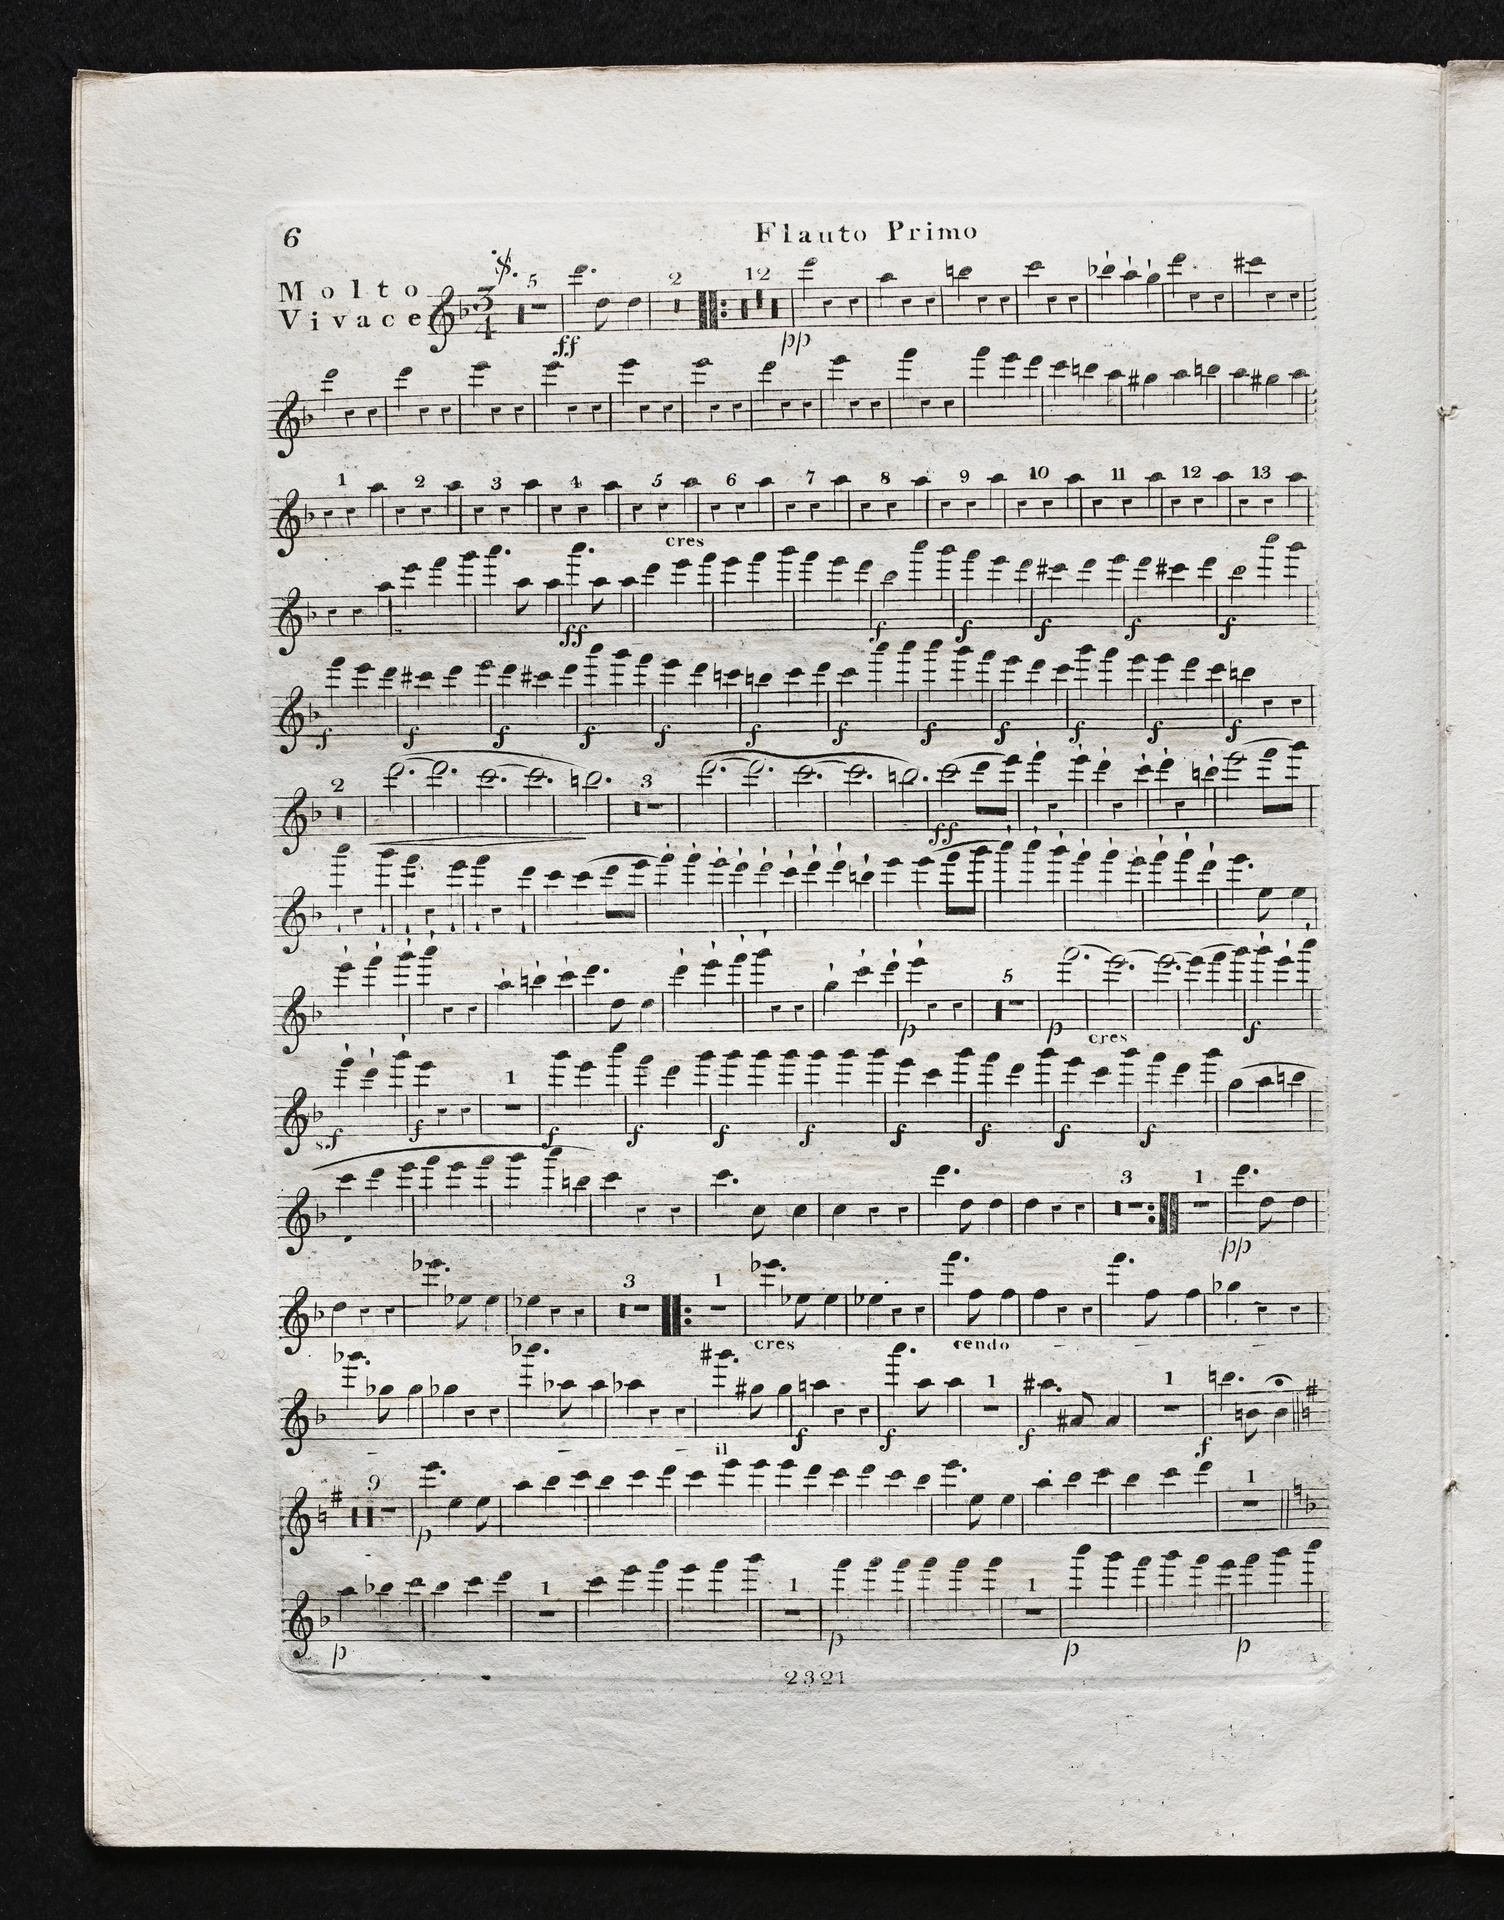 6
Flauto Primo
Molto
Vivace
3
4
5 2 12
ff pp
1 2 3 4 5 6 7 8 9 10 11 12 13
cres
ff f f f f f
f f f f f f f f f f f f
2 3
ff
5
p p cres f
1
s.f f f f f f f f f f
3 1
pp
3 1
cres cendo
1 1
il f f f f
9 1
p
1 1 1
p p p p
2321